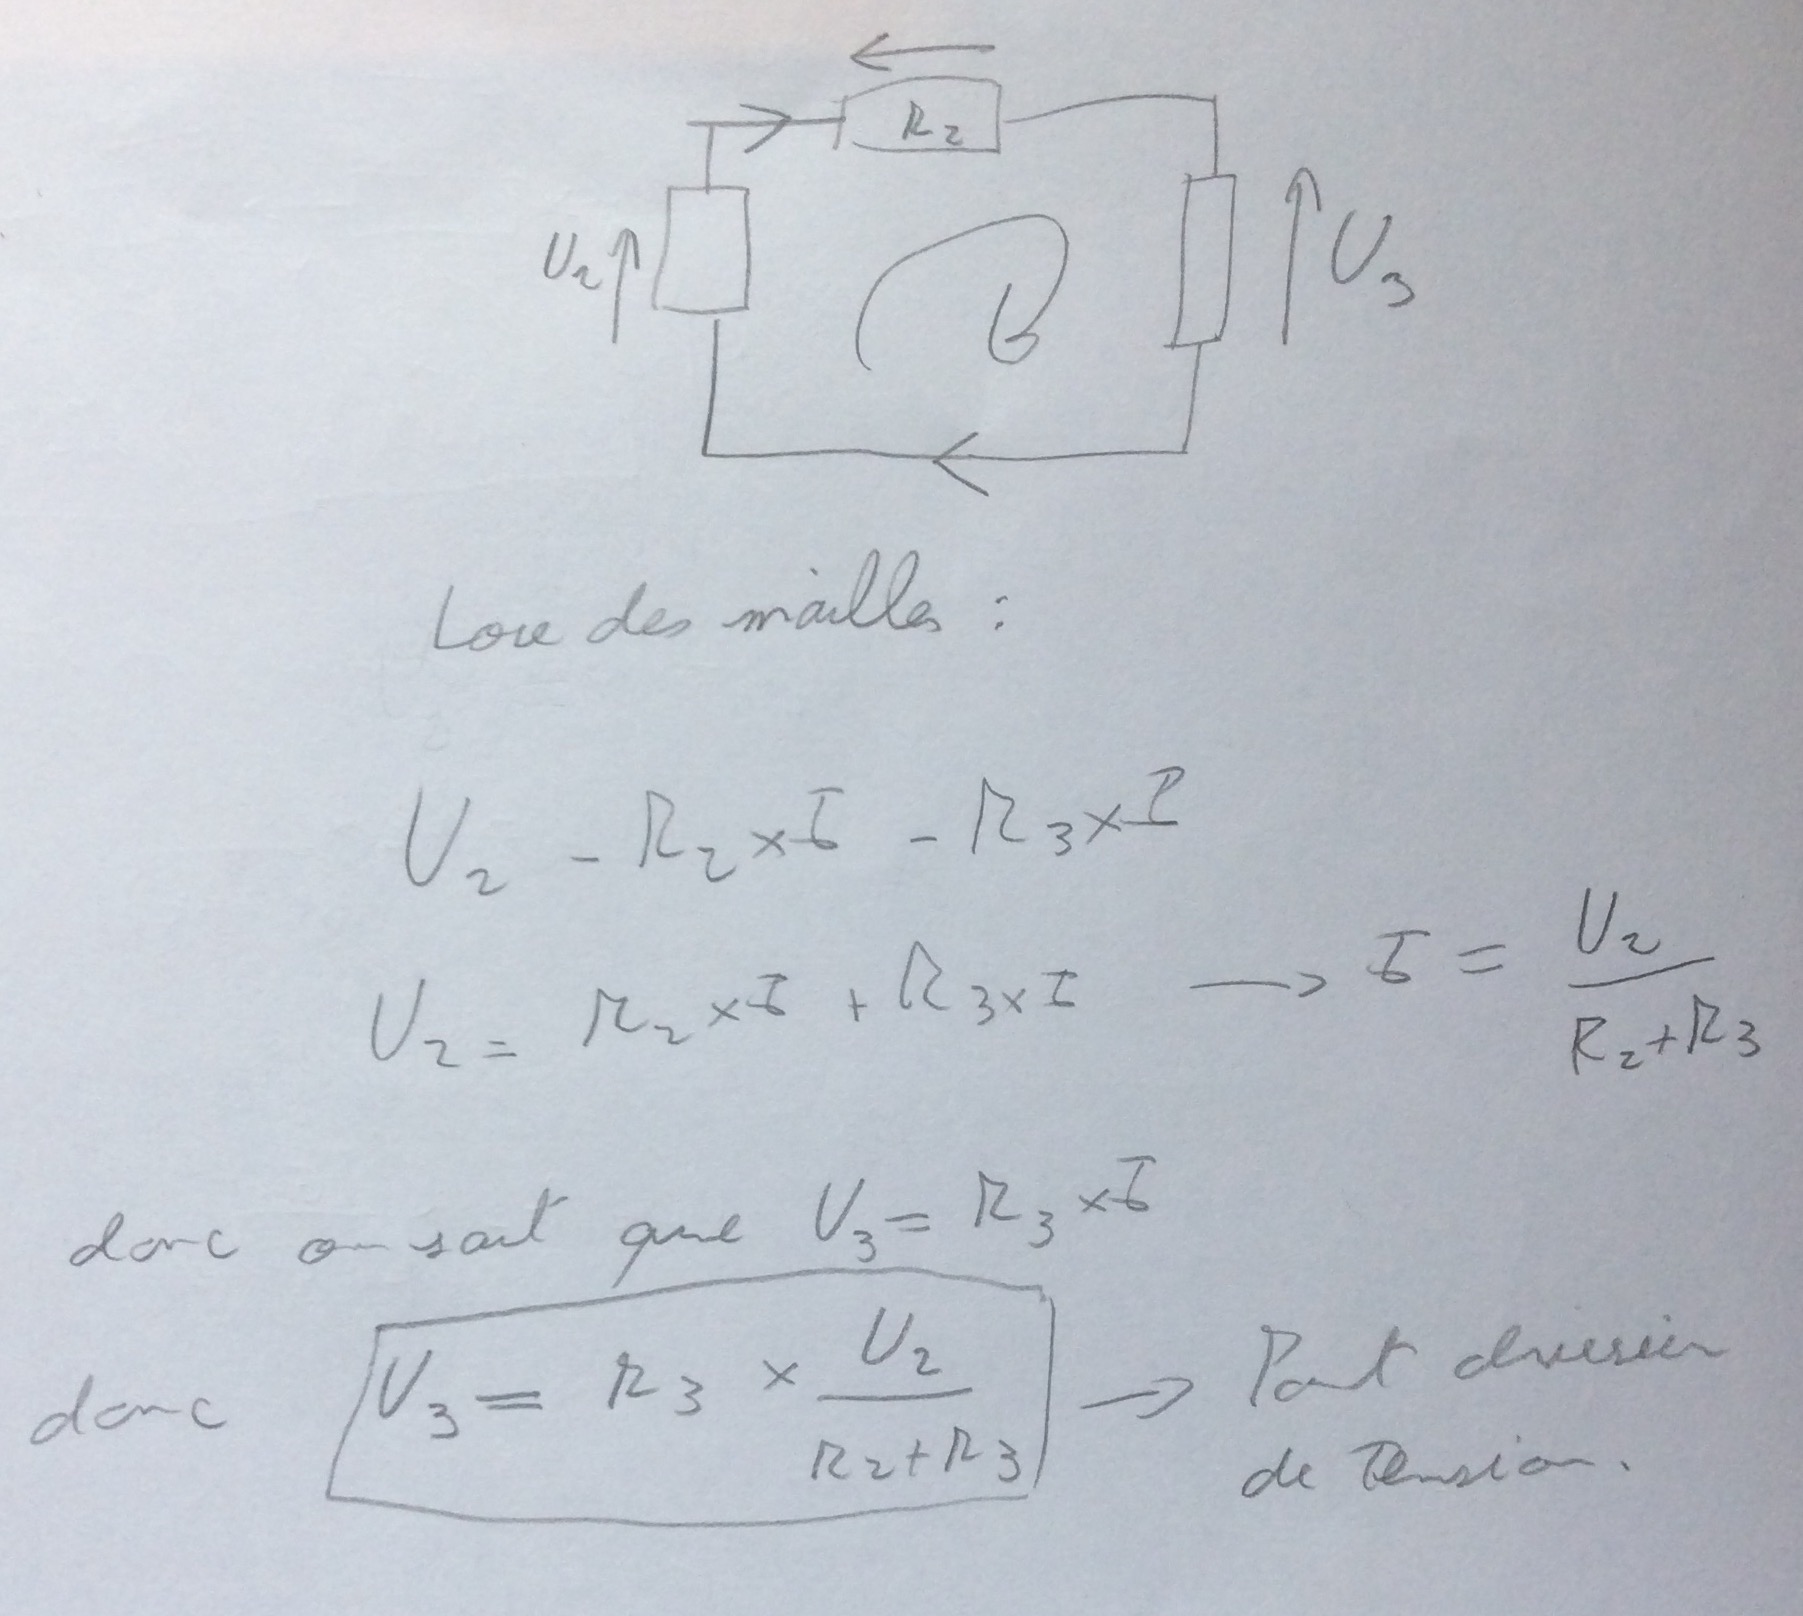 R2
U2
U3
Loie des mailles :
U2 - R2 x I - R3 x I
U2 = R2 x I + R3 x I → I = U2 / R2+R3
donc on sait que U3 = R3 x I
donc U3 = R3 x U2 / R2+R3 → Pont diviseur
de Tension.